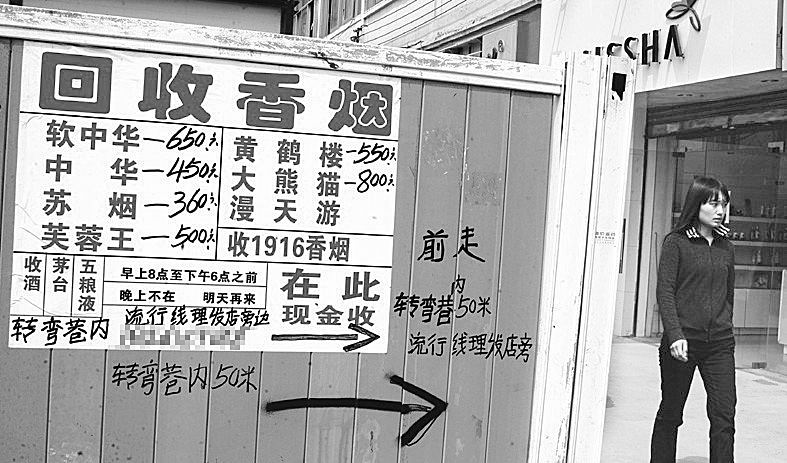 回收香烟
软中华—650元
中华—450元
苏烟—360元
芙蓉王—500元
黄鹤楼—550元
大熊猫—800元
漫天游
收1916香烟
收酒
茅台
五粮液
早上8点至下午6点之前
晚上不在 明天再来
在此
现金收
转弯巷内 流行线理发店旁边
转弯巷内50米
前走
内
转弯巷50米
流行线理发店旁
MISSHA